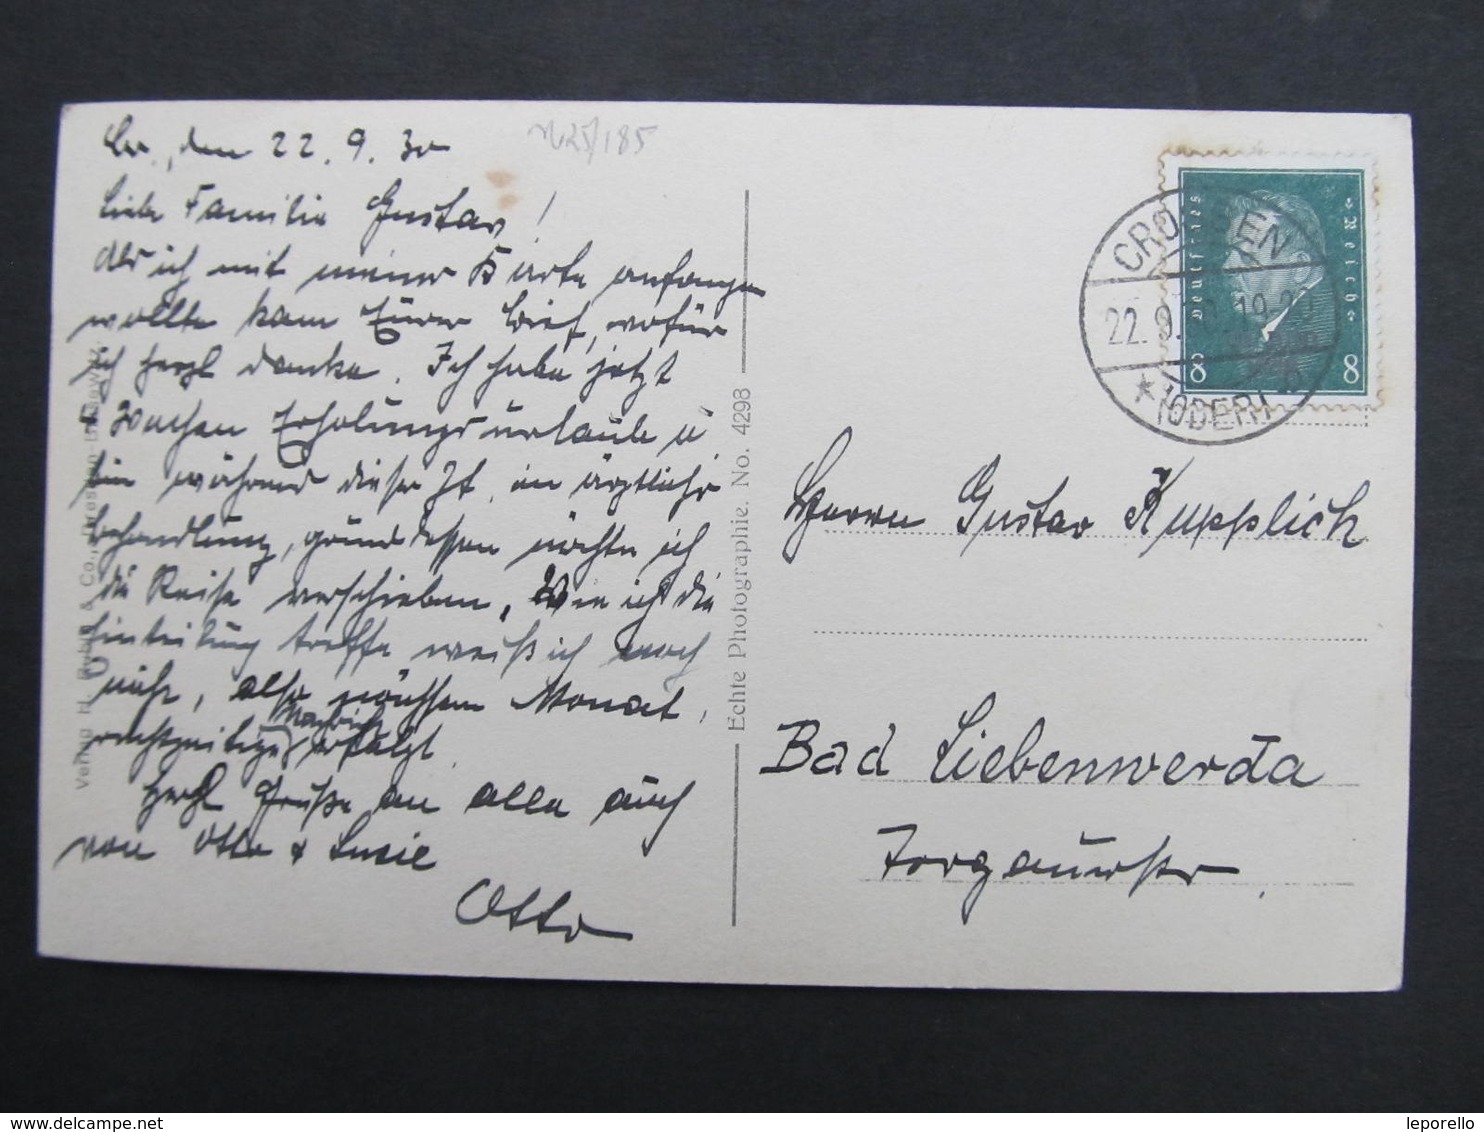 Cr., den 22.9.30
n25/185
Liebe Familie Gustav!
Als ich mit meiner Karte anfangen
wollte kam Eurer Brief, wofür
ich herzl danke. Ich habe jetzt
Wochen Erholungsurlaub u
bin während dieser Zt. in ärztlicher
Behandlung, gründessen möchte ich
die Reise verschieben. Wie ich die
Einteilung treffe weiß ich noch
nicht, also nächsten Monat,
rechtzeitige Nachricht erfolgt.
Herzl Grüße an alle auch
von Otto + Susie
Otto
Echte Photographie. No. 4298
Verlag H. & Co., Dresden-
CROSSEN
22.9.30.19-20
* (ODER)
Deutsches Reich
8 8
Herrn Gustav Kupplich
Bad Liebenwerda
Torgauerstr.
delcampe.net
leporello